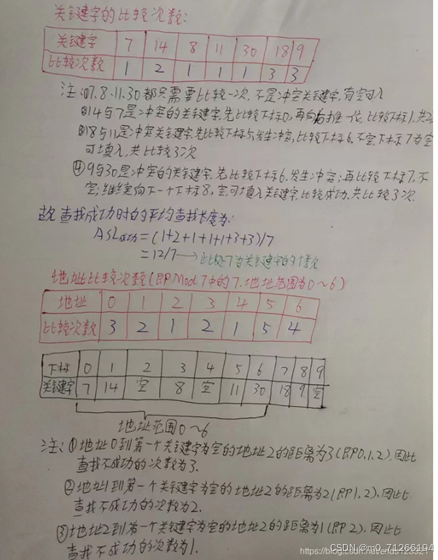 关键字的比较次数:
关键字 7 14 8 11 30 18 9
比较次数 1 2 1 1 1 3 3
注:①7.8.11.30都只需要比较一次,不是冲突关键字,有空可入
②14与7是冲突的关键字,先比较下标0,再向后推一位,比较下标1,共2
③18与11是冲突关键字,先比较下标5,发生冲突,比较下标6,不空下标7为空
可填入,共比较3次
④9与30是冲突的关键字,先比较下标6,发生冲突;再比较下标7,不
空;继续向下一个下标8,空可填入关键字,比较成功,共比较3次.
故:查找成功时的平均查找长度为:
ASL成功=(1+2+1+1+1+3+3)/7
=12/7→比处7为关键字的个数
地址比较次数(即P Mod 7中的7.地址范围为0~6)
地址 0 1 2 3 4 5 6
比较次数 3 2 1 2 1 5 4
下标 0 1 2 3 4 5 6 7 8 9
关键字 7 14 空 8 空 11 30 18 9 空
地址范围0~6
注:①地址0到第一个关键字为空的地址2的距离为3(即0.1.2),因此
查找不成功的次数为3.
②地址1到第一个关键字为空的地址2的距离为2(即1.2),因此
查找不成功的次数为2.
③地址2到第一个关键字为空的地址2的距离为1(即2),因此
查找不成功的次数为1.
CSDN @m0_71266194